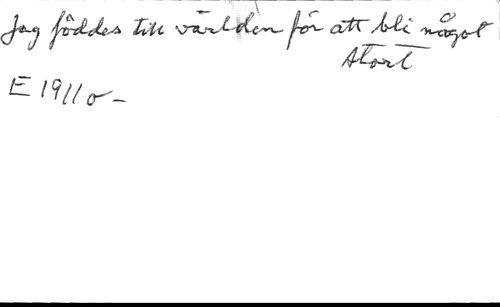 Jag föddes till världen för att bli något
stort
E 1911 o -